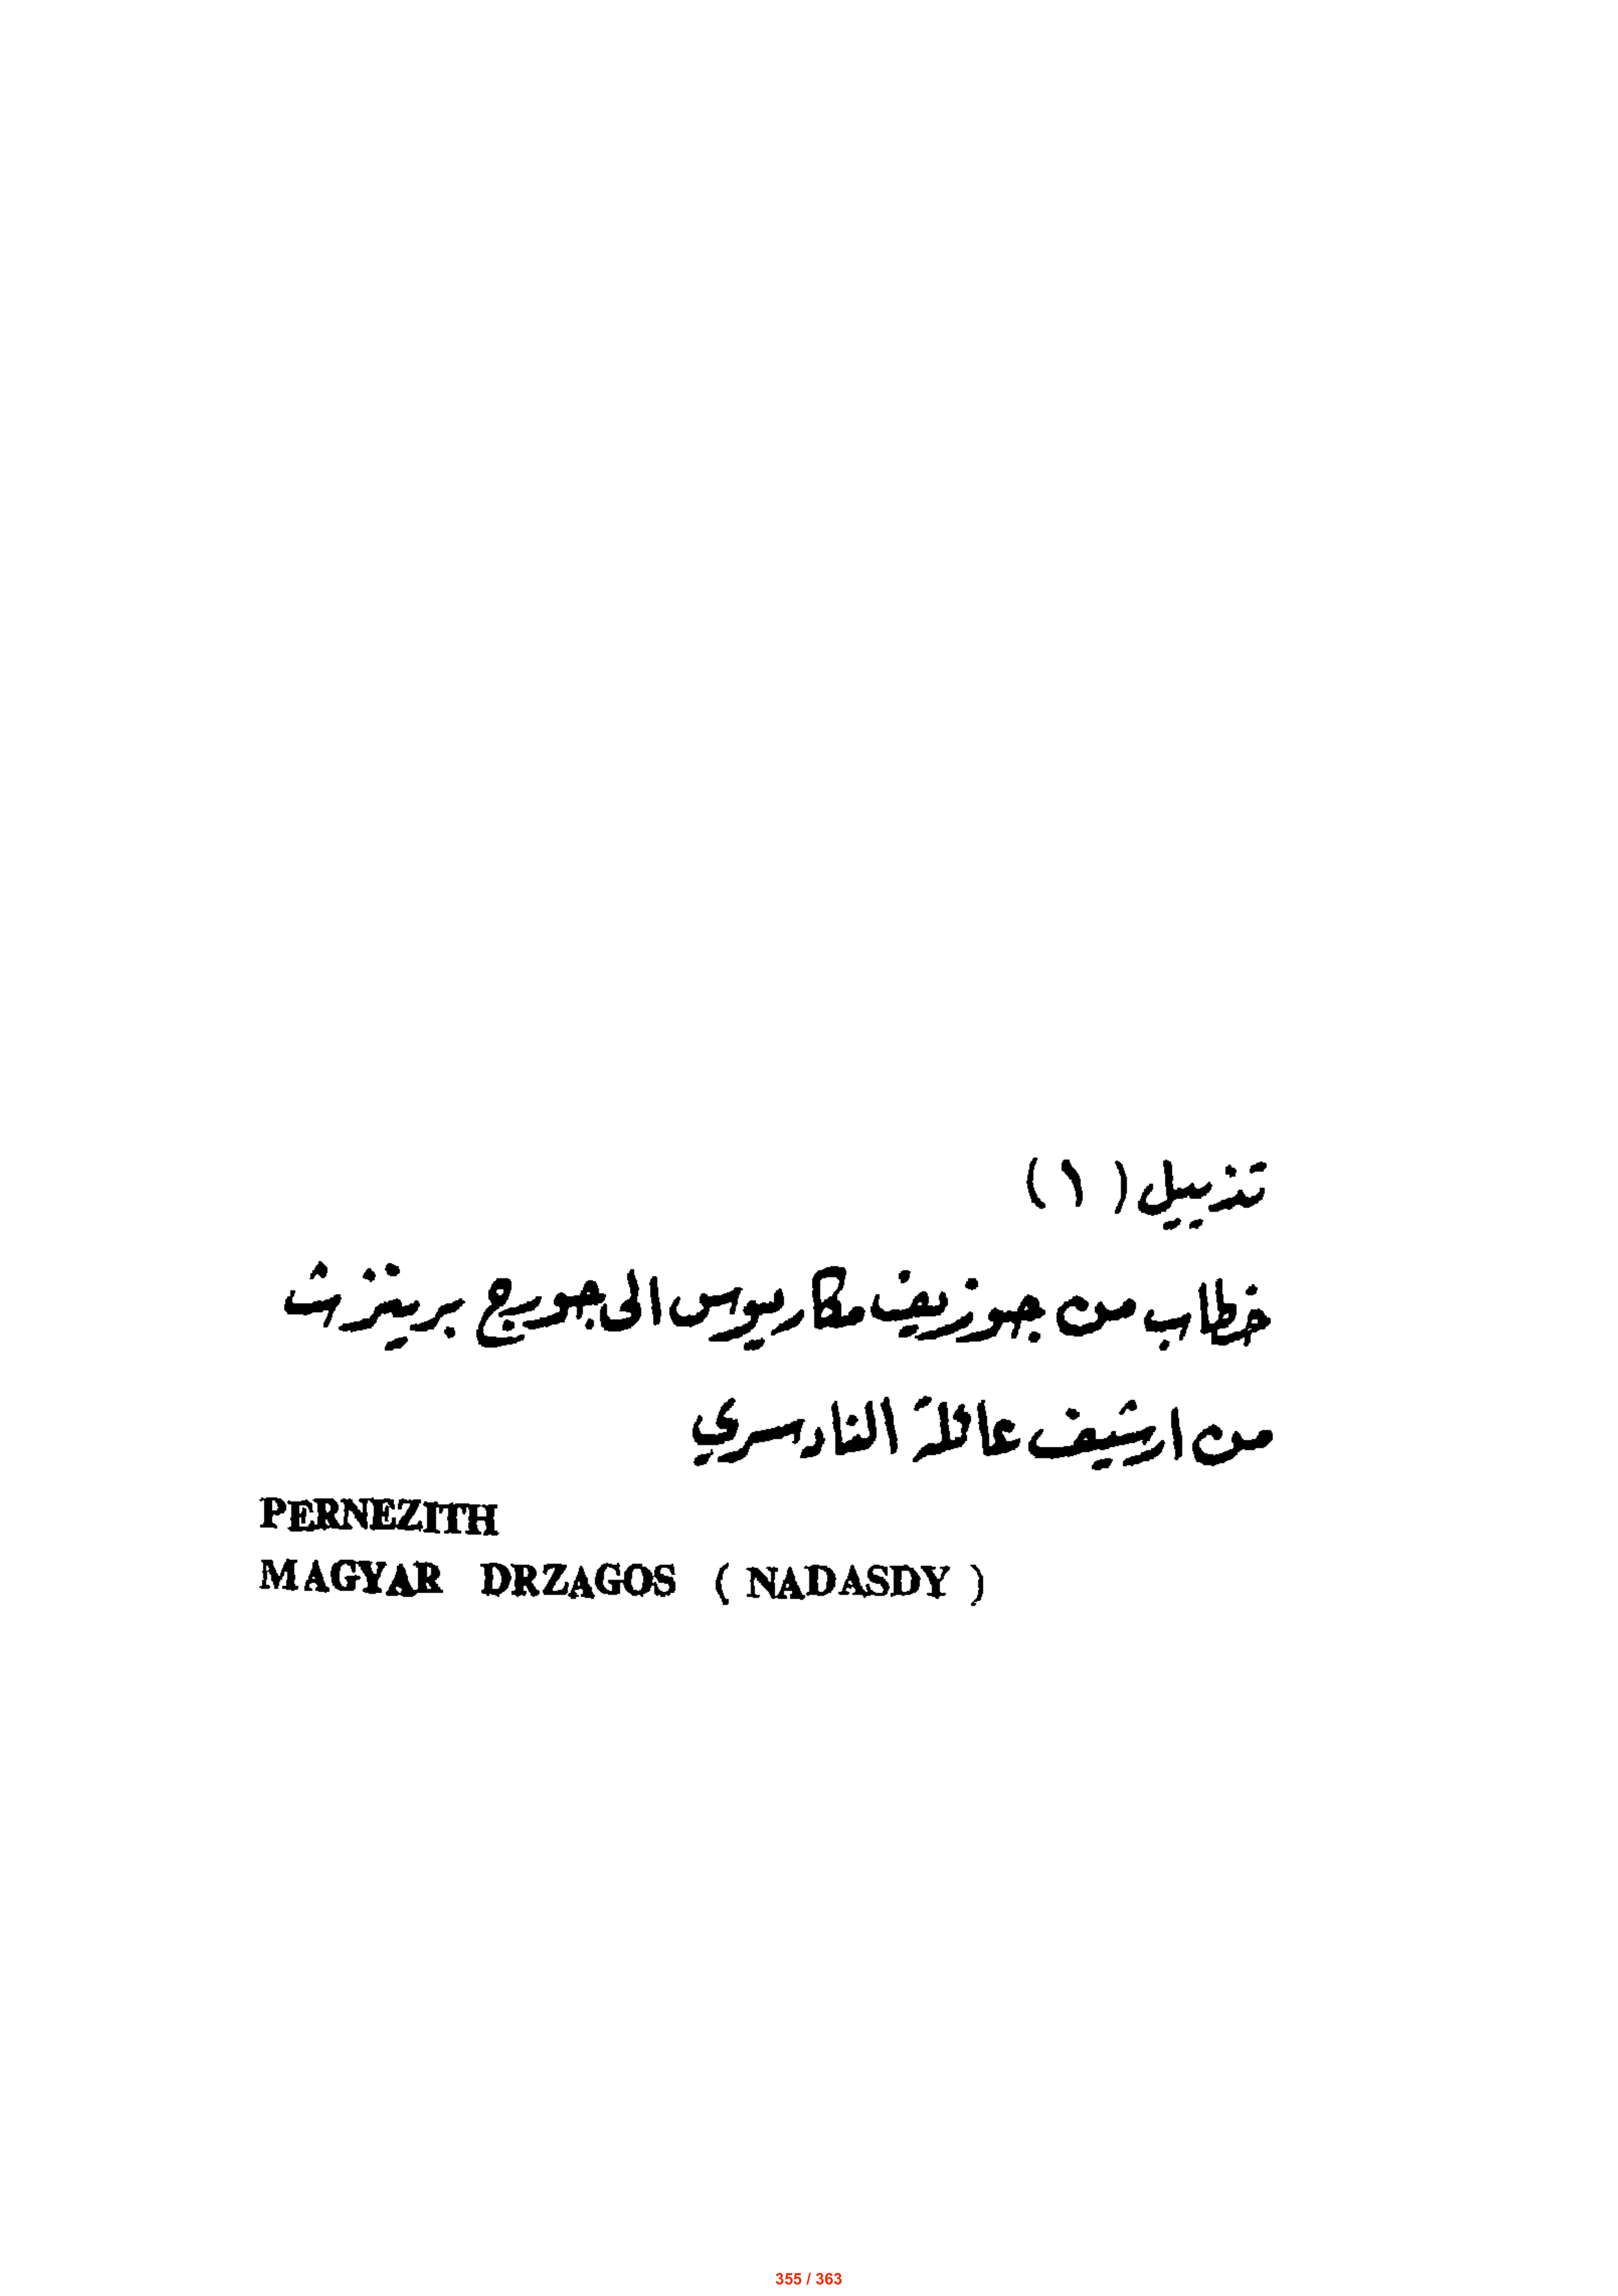 تذييل (١)
خطاب من جوزيف مكاريوس الى جوريج برينزث
من ارشيف عائلة النادسري
PERNEZITH
MAGYAR DRZAGOS ( NADASDY )
355 / 363